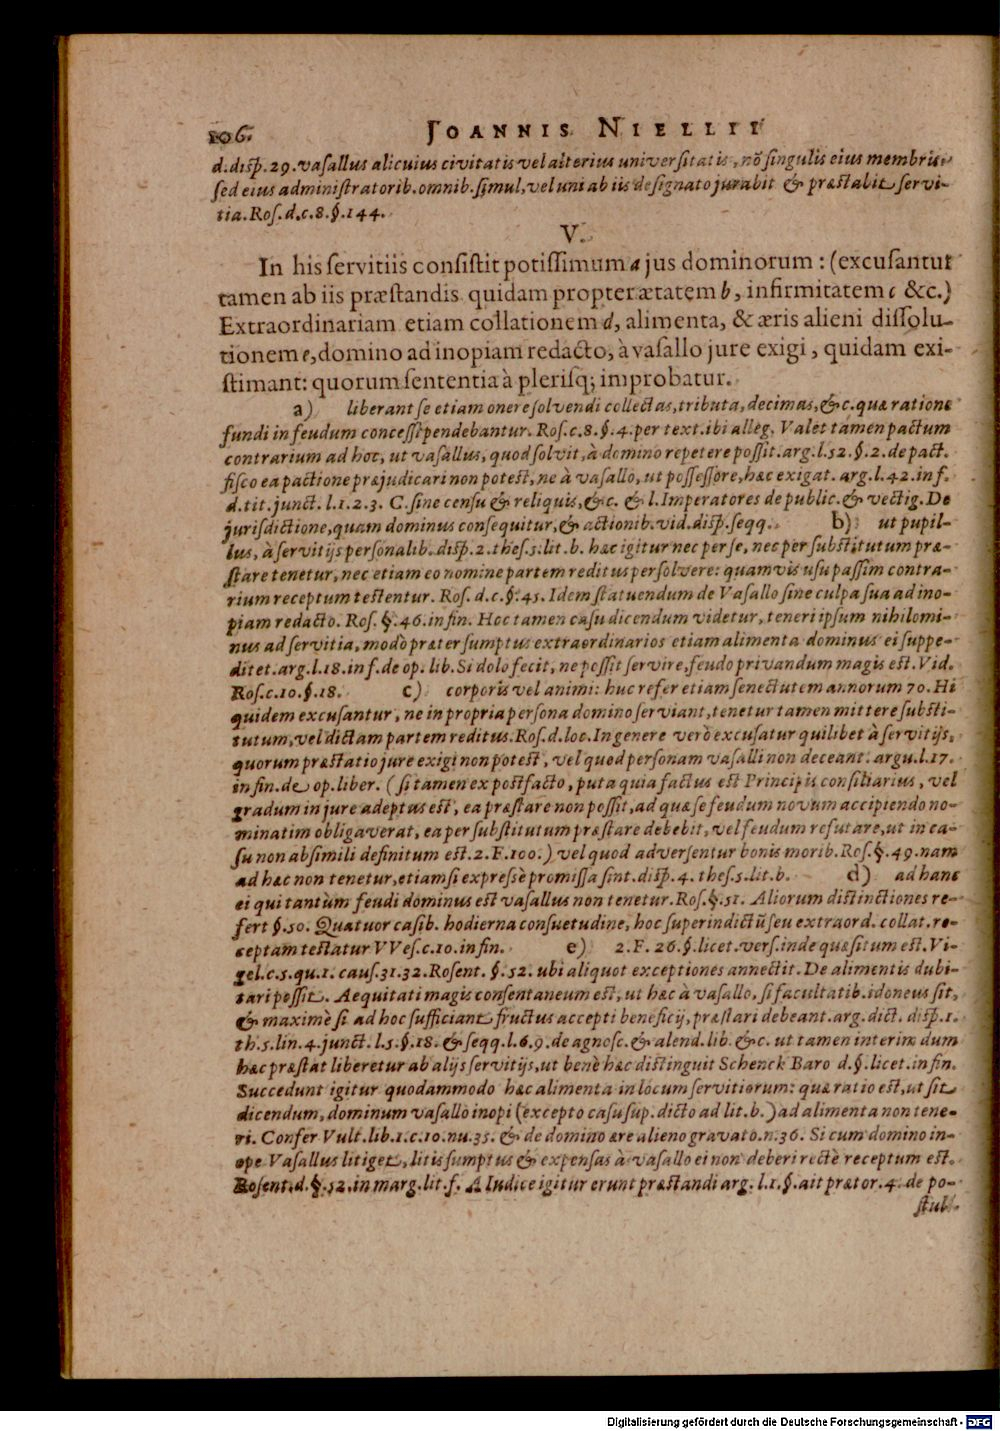 106. JOANNIS NIELLII
d. disp. 29. vasallus alicuius civitatis vel alterius universitatis, nõ singulis eius membris,
sed eius administratorib. omnib. simul, vel uni ab iis designato jurabit & præstabit servi-
tia. Ros. d. c. 8. §. 144.
V.
In his servitiis consistit potissimum a jus dominorum: (excusantur
tamen ab iis præstandis quidam propter ætatem b, infirmitatem c &c.)
Extraordinariam etiam collationem d, alimenta, & æris alieni dissolu-
tionem e, domino ad inopiam redacto, à vasallo jure exigi, quidam exi-
stimant: quorum sententia à plerisq; improbatur.
a) liberant se etiam onere solvendi collectas, tributa, decimas, &c. quæ ratione
fundi in feudum concessi pendebantur. Ros. c. 8. §. 4. per text. ibi alleg. Valet tamen pactum
contrarium ad hoc, ut vasallus, quod solvit, à domino repetere possit. arg. l. 52. §. 2. de pact.
fisco ea pactione præjudicari non potest, ne à vasallo, ut possessore, hæc exigat. arg. l. 42. in f.
d. tit. junct. l. 1. 2. 3. C. sine censu & reliquis, &c. & l. Imperatores de public. & vectig. De
jurisdictione, quam dominus consequitur, & actionib. vid. disp. seqq. b) ut pupil-
lus, à servitijs personalib. disp. 2. thes. 5. lit. b. hæc igitur nec per se, nec per substitutum præ-
stare tenetur, nec etiam eo nomine partem reditus persolvere: quamvis usu passim contra-
rium receptum testentur. Ros. d. c. §. 45. Idem statuendum de Vasallo sine culpa sua ad ino-
piam redacto. Ros. §. 46. in fin. Hoc tamen casu dicendum videtur, teneri ipsum nihilomi-
nus ad servitia, modò præter sumptus extraordinarios etiam alimenta dominus ei suppe-
ditet. arg. l. 18. in f. de op. lib. Si dolo fecit, ne possit servire, feudo privandum magis est. Vid.
Ros. c. 10. §. 18. c) corporis vel animi: huc refer etiam senectutem annorum 70. Hi
quidem excusantur, ne in propria persona domino serviant, tenetur tamen mittere substi-
tutum, vel dictam partem reditus. Ros. d. loc. In genere verò excusatur quilibet à servitijs,
quorum præstatio jure exigi non potest, vel quod personam vasalli non deceant. argu. l. 17.
in fin. de op. liber. (si tamen ex postfacto, puta quia factus est Principis consiliarius, vel
gradum in jure adeptus est, ea præstare non possit, ad quæ se feudum novum accipiendo no-
minatim obligaverat, ea per substitutum præstare debebit, vel feudum refutare, ut in ca-
su non absimili definitum est. 2. F. 100.) vel quod adversentur bonis morib. Ros. §. 49. nam
ad hæc non tenetur, etiamsi expressè promissa sint. disp. 4. thes. 5. lit. b. d) ad hanc
ei qui tantùm feudi dominus est vasallus non tenetur. Ros. §. 51. Aliorum distinctiones re-
fert §. 50. Quatuor casib. hodierna consuetudine, hoc superindictũ seu extraord. collat. re-
ceptam testatur VVes. c. 10. in fin. e) 2. F. 26. §. licet. vers. inde quæsitum est. Vi-
gel. c. 5. qu. 1. caus. 31. 32. Rosent. §. 52. ubi aliquot exceptiones annectit. De alimentis dubi-
tari possit. Aequitati magis consentaneum est, ut hæc à vasallo, si facultatib. idoneus sit,
& maximè si ad hoc sufficiant fructus accepti beneficij, præstari debeant. arg. dict. disp. 1.
th. 5. lin. 4. junct. l. 5. §. 18. & seqq. l. 6. 9. de agnosc. & alend. lib. &c. ut tamen interim dum
hæc præstat liberetur ab alijs servitijs, ut benè hæc distinguit Schenck Baro d. §. licet. in fin.
Succedunt igitur quodammodo hæc alimenta in locum servitiorum: quæ ratio est, ut sit
dicendum, dominum vasallo inopi (excepto casu sup. dicto ad lit. b.) ad alimenta non tene-
ri. Confer Vult. lib. 1. c. 10. nu. 35. & de domino ære alieno gravato. n. 36. Si cum domino in-
ope Vasallus litiget, litis sumptus & expensas à vasallo ei non deberi rectè receptum est.
Rosent. d. §. 52. in marg. lit. f. A Iudice igitur erunt præstandi arg. l. 1. §. ait prætor. 4. de po-
stul.
Digitalisierung gefördert durch die Deutsche Forschungsgemeinschaft - DFG